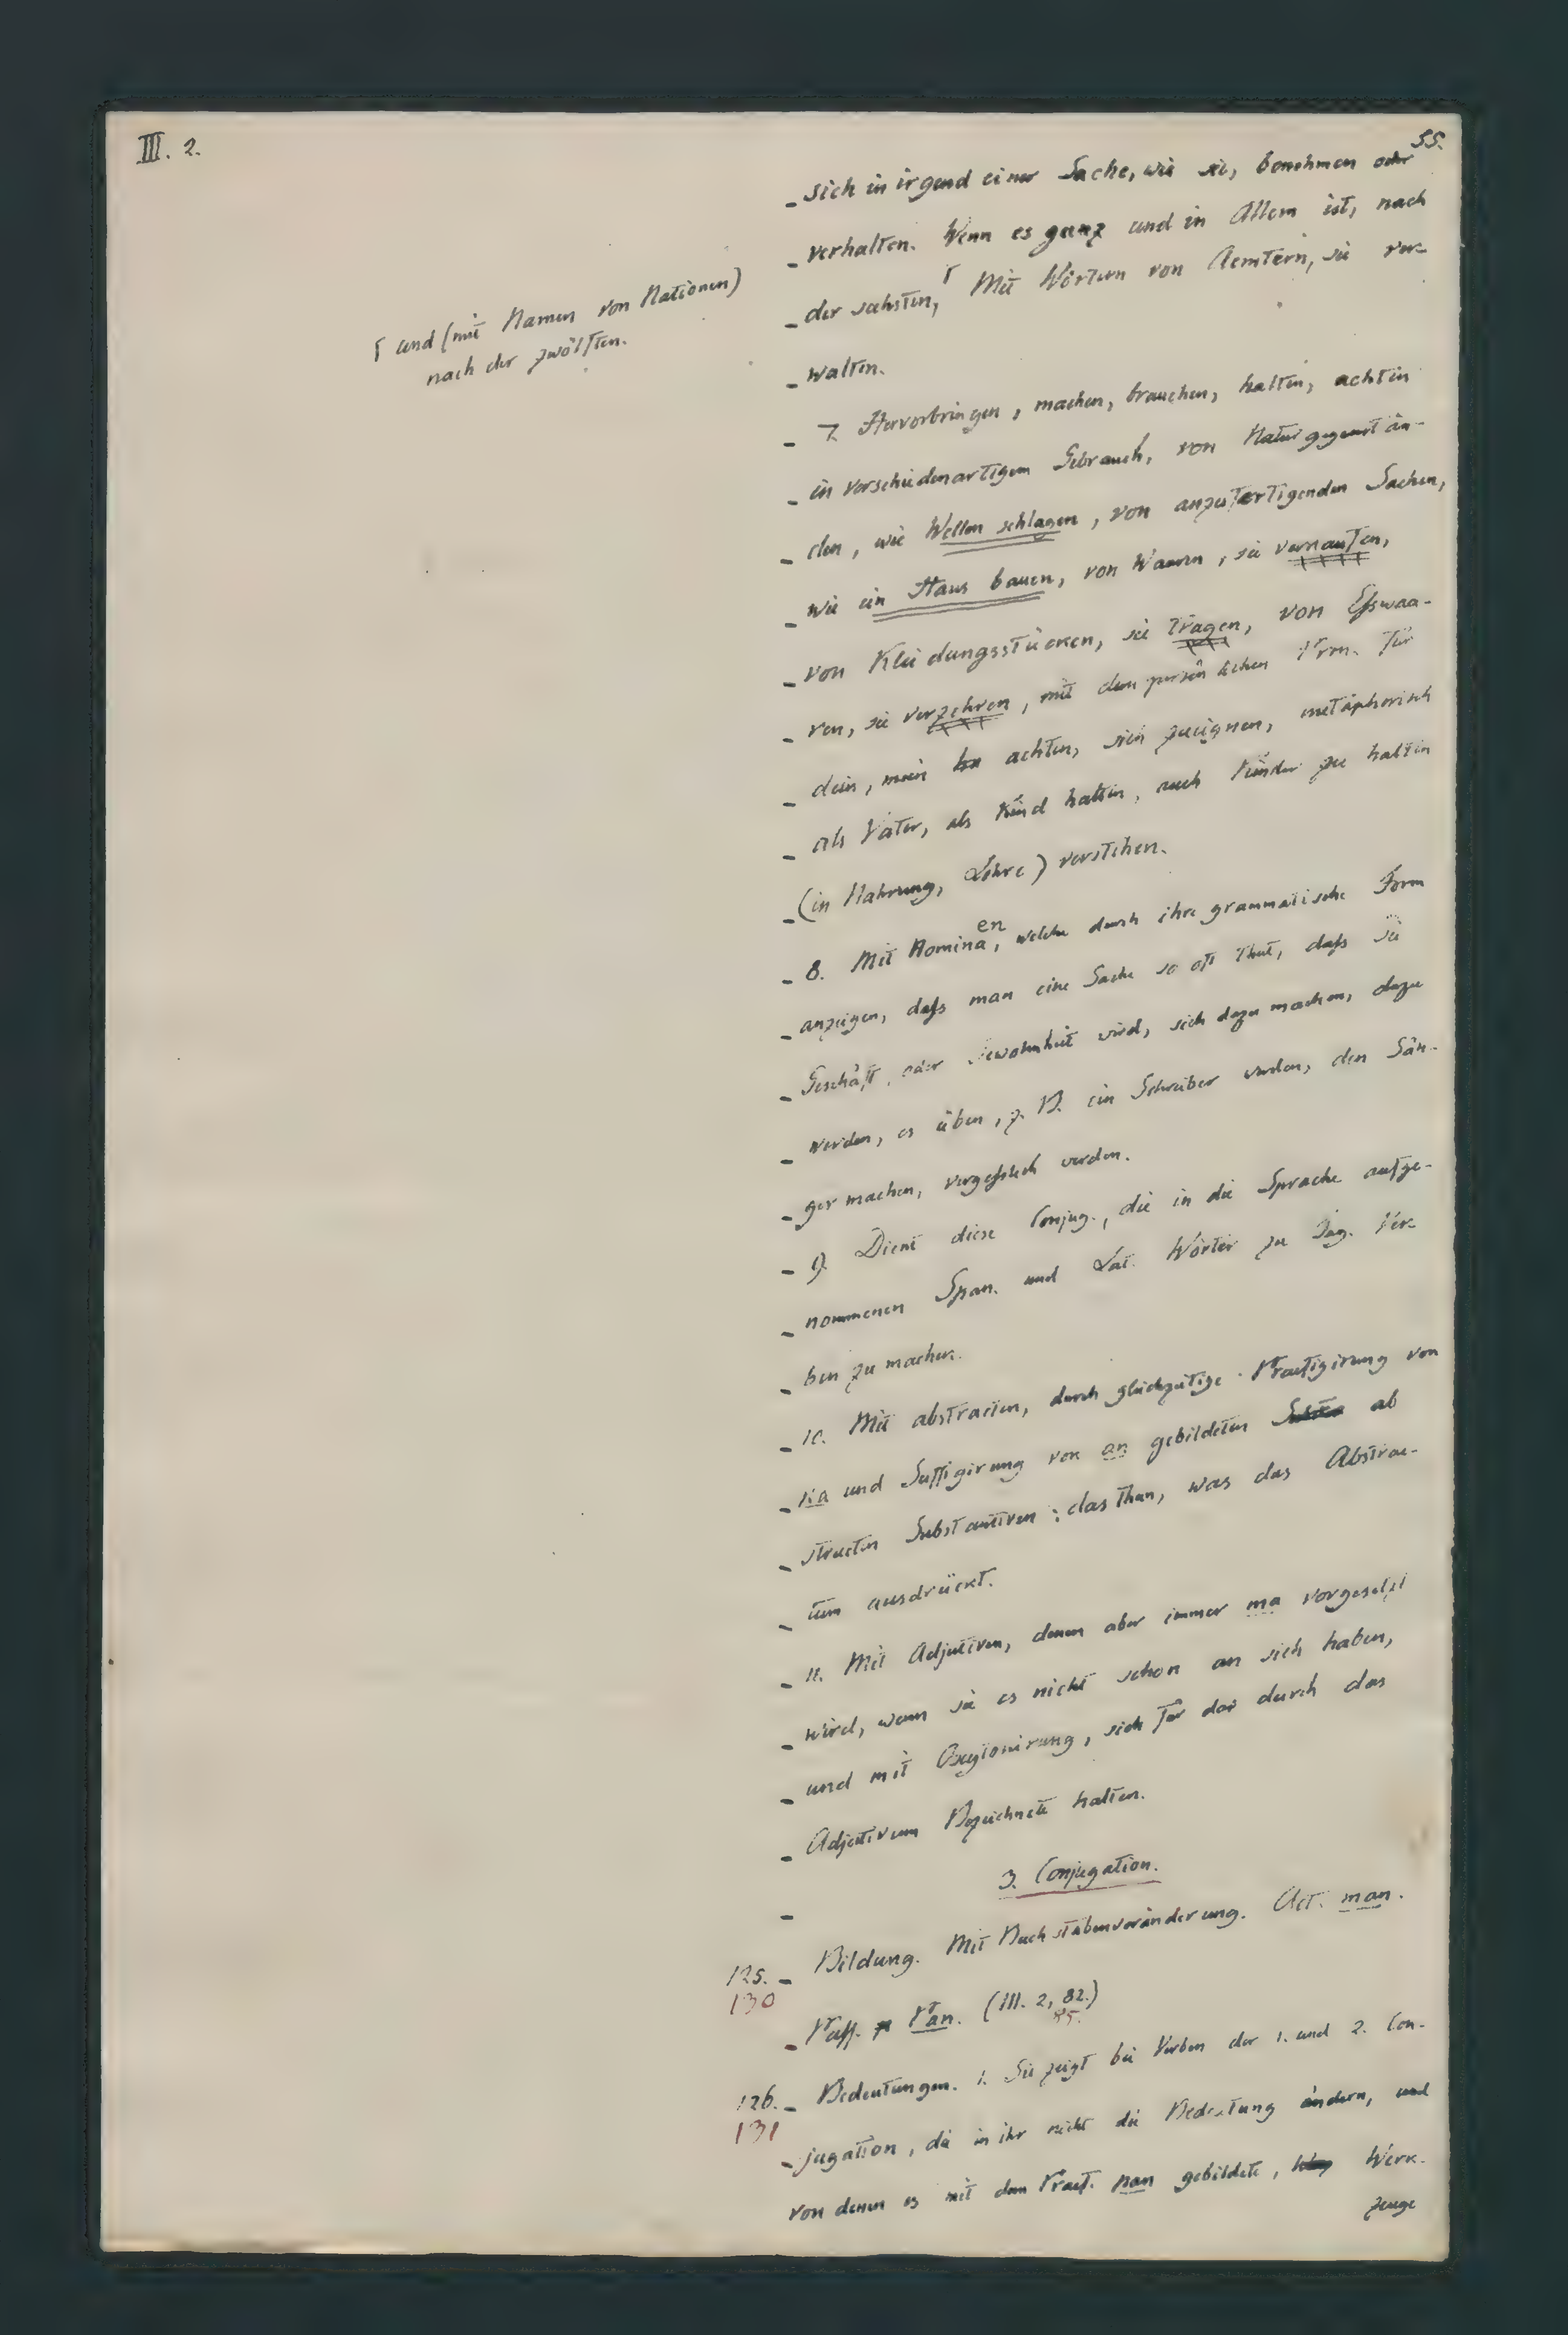 III. 2.
55.
sich in irgend einer Sache, wie sie, benehmen oder
verhalten. Wenn es ganz und in Allem ist, nach
der sechsten, ⌈ Mit Wörtern von Aemtern, sie ver-
⌈ und (mit Namen von Nationen)
nach der zwölften.
walten.
7. Hervorbringen, machen, brauchen, halten, achten
in verschiedenartigem Gebrauch, von Naturgegenstän-
den, wie Wellen schlagen, von anzufertigenden Sachen,
wie ein Haus bauen, von Waaren, sie verkaufen,
von Kleidungsstücken, sie tragen, von Esswaa-
ren, sie verzehren, mit dem persönlichen Prn. für
dein, mein achten, sich zueignen, metaphorisch
als Vater, als Kind halten, auch Kinder zu halten
(in Nahrung, Lehre) verstehen.
8. Mit Nominaen, welche durch ihre grammatische Form
anzeigen, dafs man eine Sache so oft thut, dafs sie
Geschäft, oder Gewohnheit wird, sich dazu machen, dazu
werden, es üben, z. B. ein Schreiber werden, den Sän-
ger machen, vergefslich werden.
9. Dient diese Conjug., die in die Sprache aufge-
nommenen Span. und Lat. Wörter zu Tag. Ver-
ben zu machen.
10. Mit abstracten, durch gleichzeitige Praefigirung von
ka und Suffigirung von an gebildeten ab
structen Substantiven: das thun, was das Abstrac-
tum ausdrückt.
11. Mit Adjectiven, denen aber immer ma vorgesetzt
wird, wenn sie es nicht schon an sich haben,
und mit Oxytonirung, sich für das durch das
Adjectivum Bezeichnete halten.
3. Conjugation.
125. Bildung. Mit Buchstabenveränderung. Act. man.
130
Pass. Pan. (III. 2, 82.)
85.
126. Bedeutungen. 1. Sie zeigt bei Verben der 1. und 2. Con-
131
jugation, die in ihr nicht die Bedeutung ändern, und
von denen es mit dem Praef. pan gebildete, Werk-
zeuge